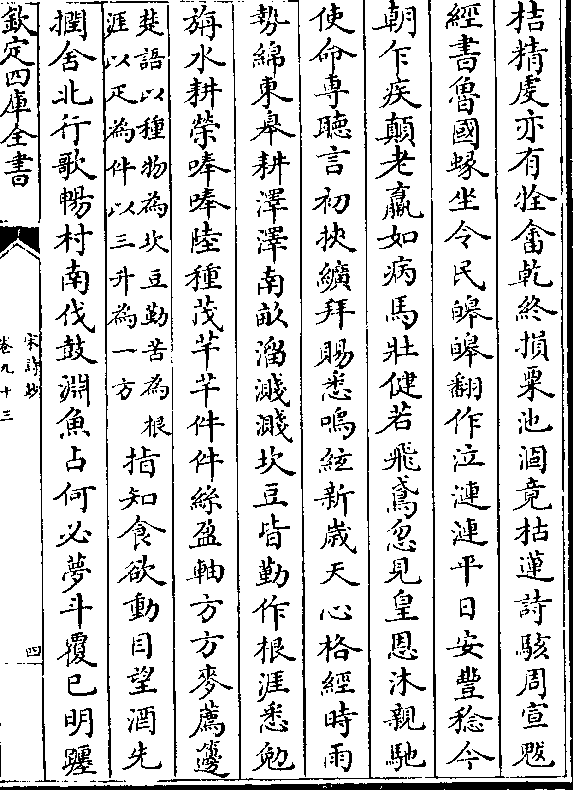 桔精虔亦有牷畬乾終損粟池涸竟枯蓮詩駭周宣魃
經書魯國蝝坐令民皥皥翻作泣漣漣平日安豐稔今
朝乍疾顛老羸如病馬壯健若飛鳶忽見皇恩沐親馳
使命専聽言初挾纊拜賜悉鳴絃新歳天心格經時雨
勢綿東皋耕澤澤南畝溜濺濺坎豆皆勤作根涯悉勉
旃水耕榮唪唪陸種茂芊芊件件絲盈軸方方麥薦籩
楚語以種物為坎豆勤苦為根
涯以疋為件以三升為一方
指知食欲動目望酒先
擱舍北行歌暢村南伐鼓淵魚占何必夢斗覆已明躔
欽定四庫全書
宋詩抄
卷九十三
四